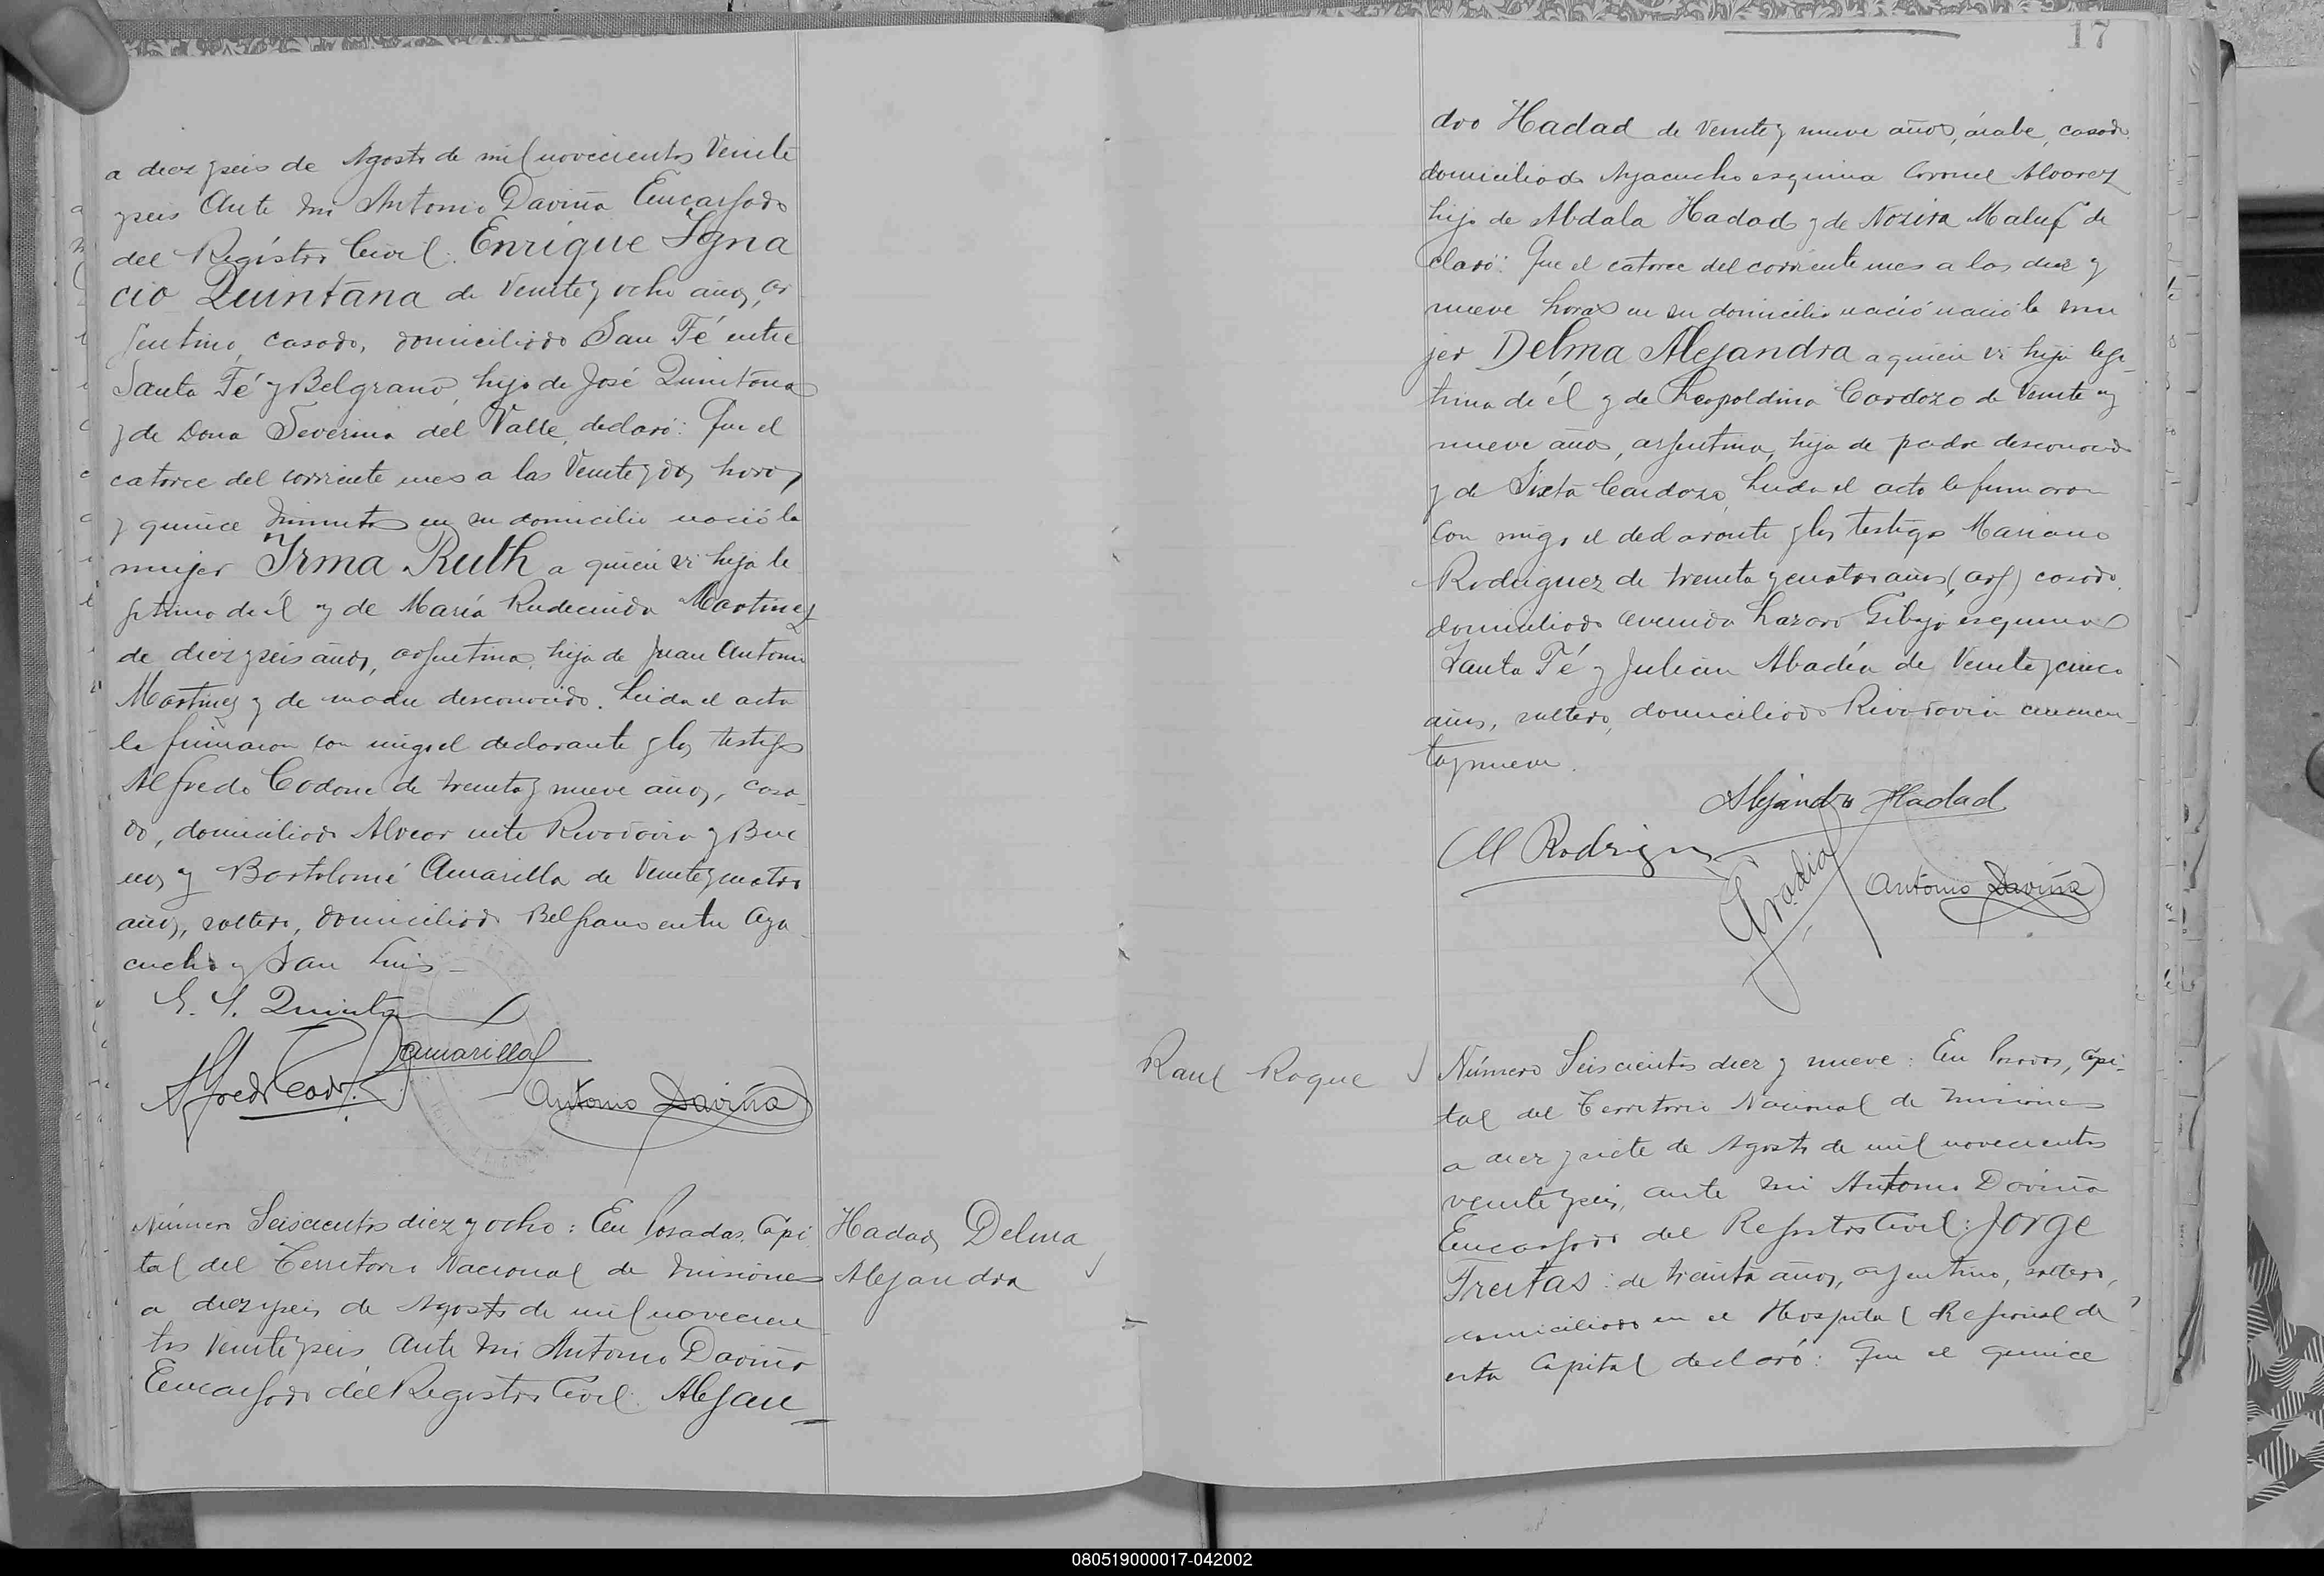 a diez y seis de Agosto de mil novecientos Veinte
y seis Ante mi Antonio Daviña Encargado
del Registro Civil: Enrique Igna
cio Quintana de Veinte y ocho años, ar
gentino, casado, domiciliado San Fé entre
Santa Fé y Belgrano, hijo de José Quintana
y de Dona Severina del Valle, declaró: Que el
catorce del corriente mes a las Veinte y dos horas
y quince minutos en su domicilio nació la
mujer Irma Ruth a quien vi hija le
gitima de él y de María Rudecinda Martinez
de diez y seis años, argentina, hija de Juan Antonio
Martinez y de madre desconocida. Leida el acta
la firmaron con migo el declarante y los testigos
Alfredo Codone de treinta y nueve años, casa-
do, domiciliado Alvear entre Rivadavia y Bue
nos y Bartolomé Amarilla de Veinte y cuatro
años, soltero, domiciliado Belgrano entre Aya
cucho y San Luis -
E. I. Quintana
Amarilla
Alfredo Codone
Antonio Daviña
Número Seiscientos diez y ocho: En Posadas, Capi
tal del Territorio Nacional de Misiones
a diez y seis de Agosto de mil novecien
tos Veinte y seis Ante mi Antonio Daviña
Encargado del Registro Civil: Alejan
Hadad, Delma
Alejandra
17
dro Hadad de Veinte y nueve años, árabe, casado
domiciliado Ayacucho esquina Coronel Alvarez
hijo de Abdala Hadad y de Nozira Maluf de
claró: Que el catorce del corriente mes a las diez y
nueve horas en su domicilio nació nació la mu
jer Delma Alejandra a quien vi hija legi-
tima de él y de Leopoldina Cardozo de Veinte y
nueve años, argentina, hija de padre desconocido
y de Sixta Cardozo, Leida el acta la firmaron
con migo el declarante y los testigos Mariano
Rodriguez de treinta y cuatro años, (arg) casado,
domiciliado avenida Lazaro Gibajo esquina
Santa Fé y Julian Abadía de Veinte y cinco
años, soltero, domiciliado Rivadavia cincuen-
ta y nueve.
Alejandro Hadad
M Rodriguez
Antonio Daviña
Raul Roque
Número Seiscientos diez y nueve: En Posadas, Capi-
tal del Territorio Nacional de Misiones
a diez y siete de Agosto de mil novecientos
veinte y seis, ante mi Antonio Daviña
Encargado del Registro Civil: Jorge
Freitas: de treinta años, argentino, soltero,
domiciliado en el Hospital Regional de
esta Capital declaró: Que el quince
080519000017-042002